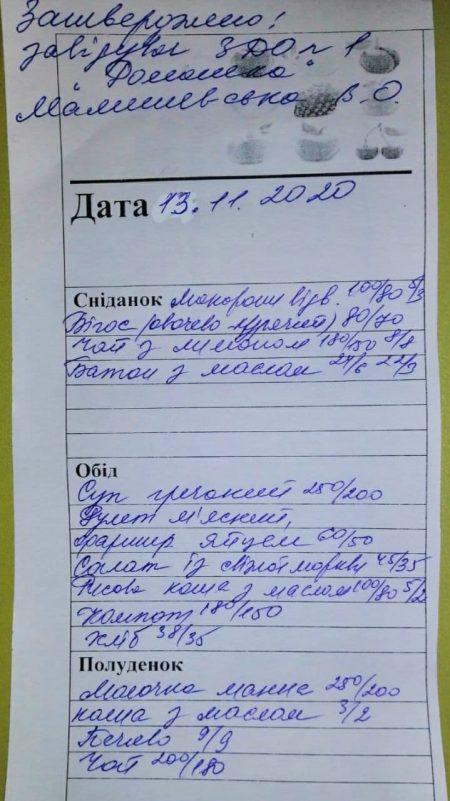 Затверджено!
завідувач ЗДО № 1
"Ромашка"
Малишевська В.О.
Дата 13.11.2020
Сніданок Макарони відв. 100/80 5/3
Бігос (овочево-курячий) 80/70
Чай з лимоном 180/150 8/8
Батон з маслом 27/6 22/3
Обід
Суп гречаний 250/200
Рулет м'ясний,
фаршир яйцем 60/50
Салат із свіжої моркви 45/35
Рисова каша з маслом 100/80 5/2
Компот 180/150
Хліб 38/35
Полуденок
Молочна манна 250/200
каша з маслом 3/2
Печиво 9/9
Чай 200/180